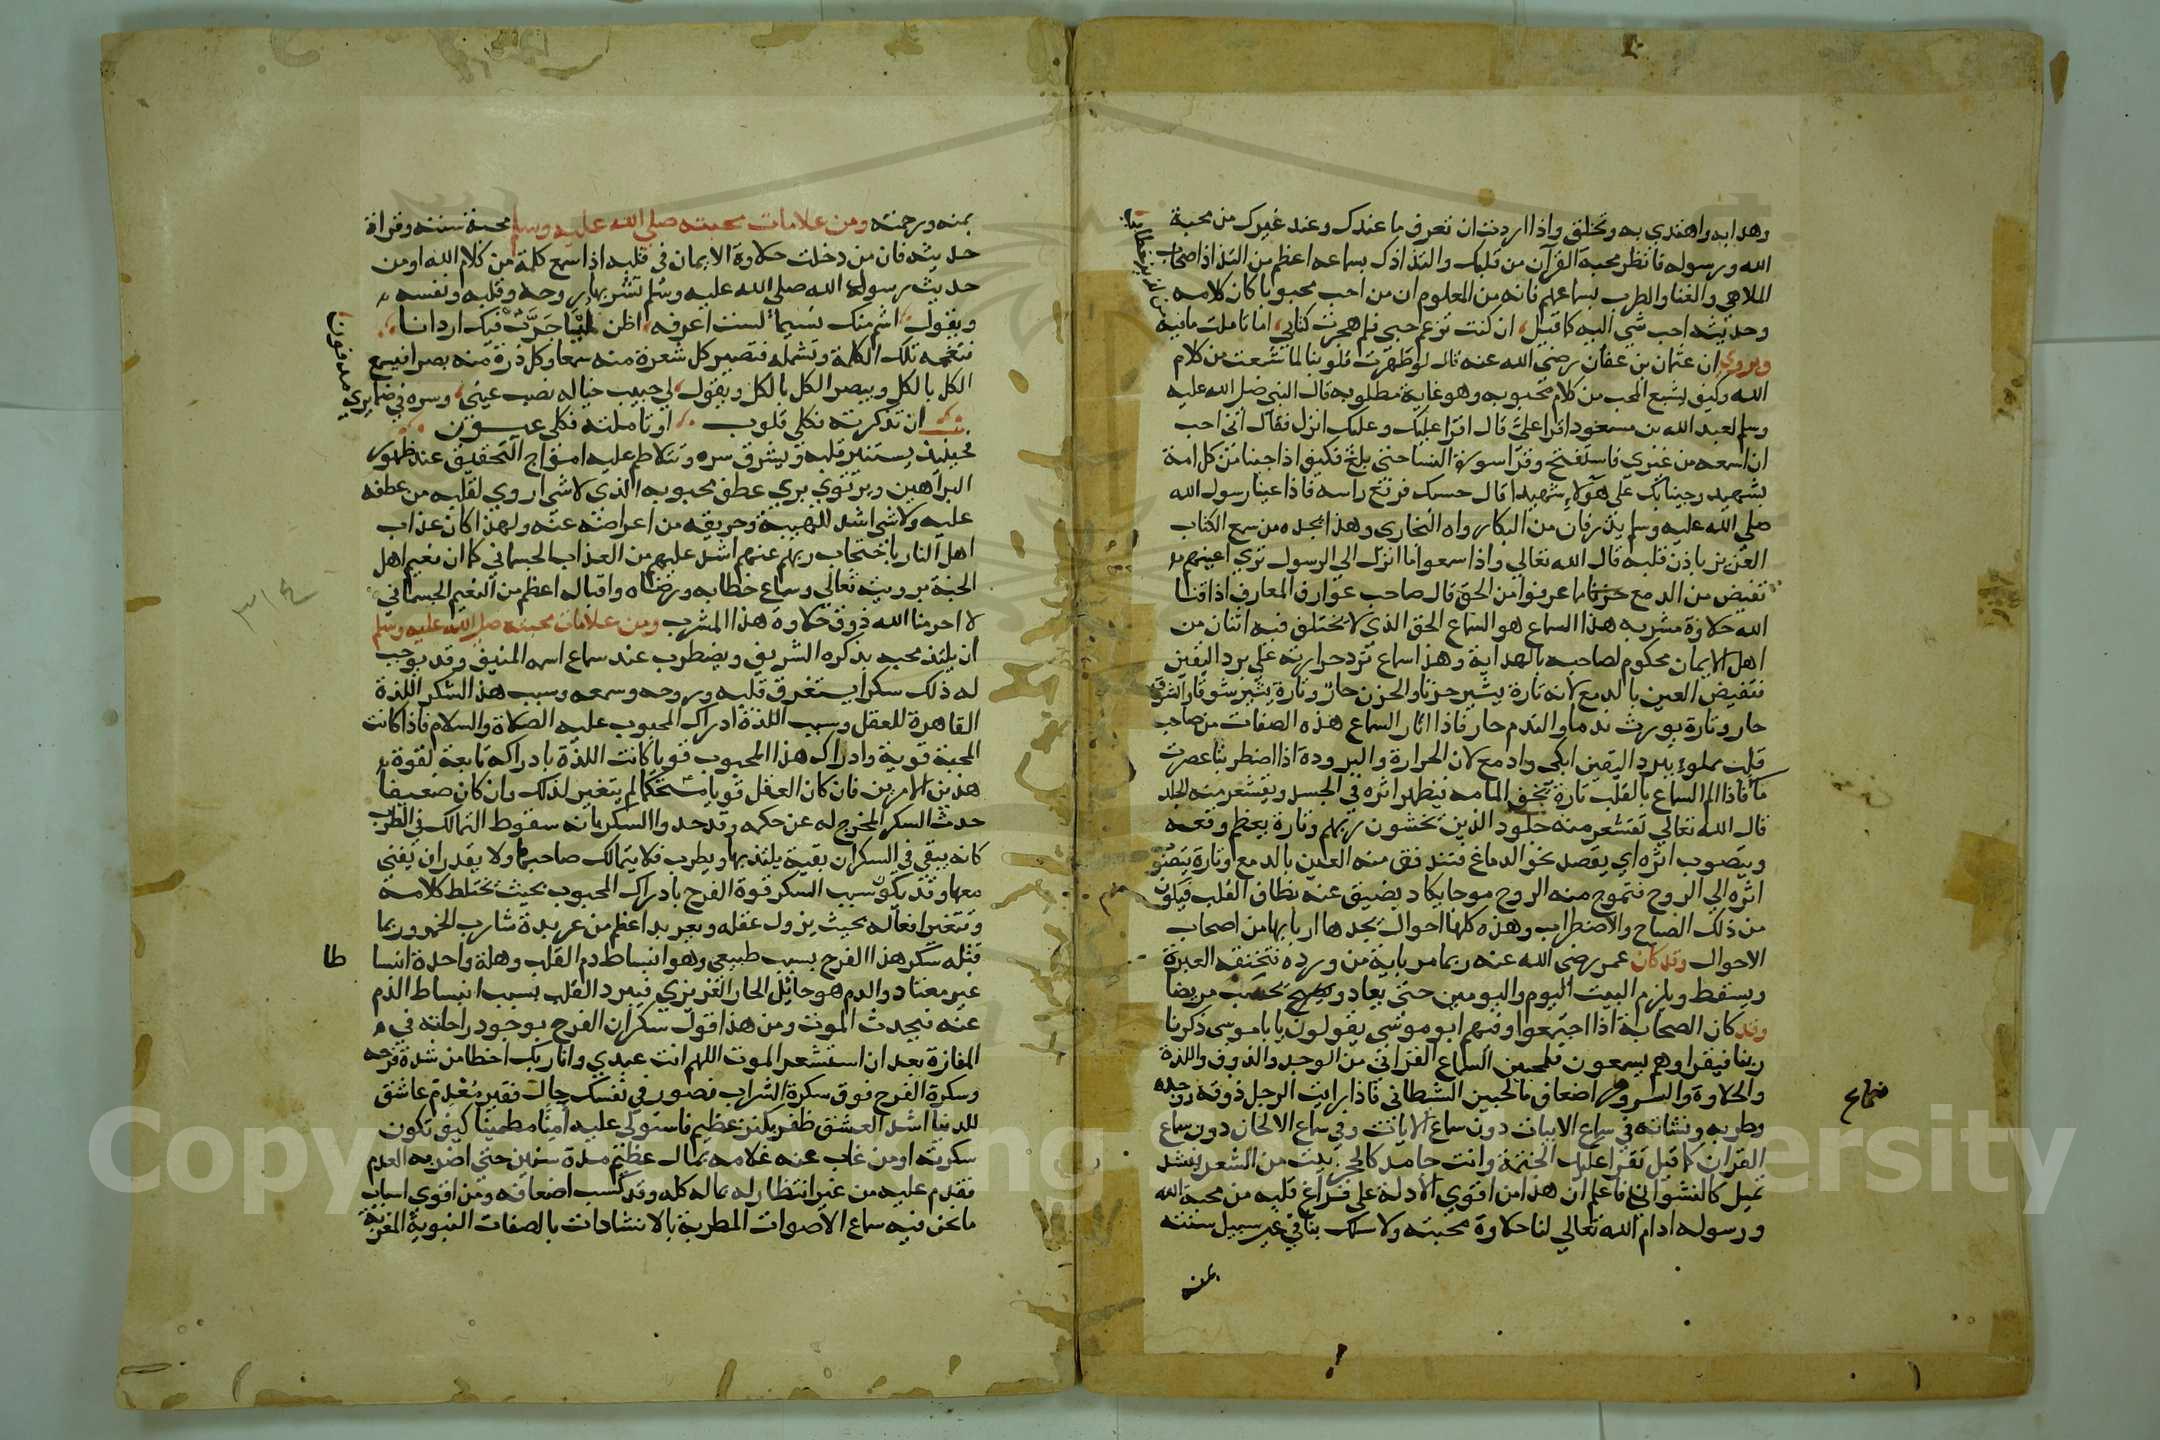 وهداه واهتدي به وتخلق واذا اردت ان تعرف ما عندك وعند غيرك من محبة
الله ورسوله فانظر محبة القرآن من قلبك والتذاذك بسماعه اعظم من التذاذ اصحاب
الملاهي والغنا والطرب بسماعهم فانه من المعلوم ان من احب محبوبا كان كلامه
وحديثه احب شي اليه كما قيل ان كنت تزعم حبي فلم هجرت كتابي اما تاملت ما فيه
ويروي ان عثمان بن عفان رضي الله عنه قال لو طهرت قلوبنا لما شبعت من كلام
الله وكيف يشبع المحب من كلام محبوبه وهو غاية مطلوبه قال النبي صلى الله عليه
وسلم لعبد الله بن مسعود اقرا علي قال اقرا عليك وعليك انزل فقال اني احب
ان اسمعه من غيري فاستفتح وقرا سورة النسا حتي بلغ فكيف اذا جينا من كل امة
بشهيد وجينا بك علي هولاء شهيدا قال حسبك فرفع راسه فاذا عينا رسول الله
صلي الله عليه وسلم يذرفان من البكا رواه البخاري وهذا يجده من سمع الكتاب
العزيز باذن قلبه قال الله تعالي واذا سمعوا ما انزل الي الرسول تري اعينهم
تفيض من الدمع مما عرفوا من الحق قال صاحب عوارف المعارف اذاقنا
الله حلاوة مشربه هذا السماع هو السماع الحق الذي لا يختلف فيه اثنان من
اهل الايمان محكوم لصاحبه بالهداية وهذا سماع ترد حرارته علي برد اليقين
فتفيض العين بالدمع لانه تارة يثير حزنا والحزن حار وتارة يثير شوقا والشوق
حار وتارة يورث ندما والندم حار فاذا اثار السماع هذه الصفات من صاحب
قلب مملوء ببرد اليقين ابكي وادمع لان الحرارة والبرودة اذا اضطربتا عصرت
ما فاذا الم السماع بالقلب تارة يخف المامه فيظهر اثره في الجسد ويقشعر منه الجلد
قال الله تعالي تقشعر منه جلود الذين يخشون ربهم وتارة يعظم وقعه
ويتصوب اثره اي يقصد نحو الدماغ فتندفق منه العين بالدمع وتارة يتصوب
اثره الي الروح فتموج منه الروح موجا يكاد يضيق عنه نطاق القلب فيكون
من ذلك الصياح والاضطراب وهذه كلها احوال يجدها اربابها من اصحاب
الاحوال وقد كان عمر رضي الله عنه ربما مر باية من ورده فتخنقه العبرة
ويسقط ويلزم البيت اليوم واليومين حتي يعاد ويحسب مريضا
وقد كان الصحابة اذا اجتمعوا وفيهم ابو موسي يقولون يا ابا موسي ذكرنا
ربنا فيقرا وهم يسمعون فلمحبين السماع القراني من الوجد والذوق واللذة
والحلاوة والسرور اضعاف ما لمحبين الشطاني فاذا رايت الرجل ذوقه ووجده
وطربه ونشاته في سماع الابيات دون سماع الايات وفي سماع الالحان دون سماع
القران كما قيل نقرا عليك الختمة وانت جامد كالحجر وبيت من الشعر ينشد
تميل كالنشوان فاعلم ان هذا من اقوي الادلة علي فراغ قلبه من محبة الله
ورسوله ادام الله تعالي لنا حلاوة محبته ولا سلك بنا في غير سبيل سنته
بمنه
بمنه ورحمته ومن علامات محبته صلي الله عليه وسلم محبة سنته وقراة
حديثه فان من دخلت حلاوة الايمان في قلبه اذا سمع كلمة من كلام الله او من
حديث رسول الله صلي الله عليه وسلم تشربها روحه وقلبه ونفسه
ويقول اشم منك نسيما لست اعرفه اظن لمياء جرت فيك اردانا
فتعمه تلك الكلمة وتشمله فتصير كل شعرة منه سمعا وكل ذرة منه بصرا فيسمع
الكل بالكل ويبصر الكل بالكل ويقول لي حبيب خياله نصب عيني وسره في ضمايري
مدفون
ان تذكرته فكلي قلوب او تاملته فكلي عيون
فحينيذ يستنير قلبه ويشرق سره وتتلاطم عليه امواج التحقيق عند ظهور
البراهين ويرتوي بري عطف محبوبه الذي لا شي اروي لقلبه من عطفه
عليه ولا شي اشد للهيبه وحريقه من اعراضه عنه ولهذا كان عذاب
اهل النار باحتجاب ربهم عنهم اشد عليهم من العذاب الجسماني كما ان نعيم اهل
الجنة برويته تعالي وسماع خطابه ورضاه واقباله اعظم من النعيم الجسماني
لا احرمنا الله ذوق حلاوة هذا المشرب ومن علامات محبته صلي الله عليه وسلم
ان يلتذ محبه بذكره الشريف ويضطرب عند سماع اسمه المنيف وقد يوجب
له ذلك سكرا يستغرق قلبه وروحه وسمعه وسبب هذا السكر اللذة
القاهرة للعقل وسبب اللذة ادراك المحبوب عليه الصلاة والسلام فاذا كانت
المحبة قوية وادراك هذا المحبوب قويا كانت اللذة بادراكه تابعة لقوة
هذين الامرين فان كان العقل قويا مستحكما لم يتغير لذلك وان كان ضعيفا
حدث السكر المخرج له عن حكمه وقد حدوا السكر بانه سقوط التمالك في الطرب
كانه يبقي في السكران بقية يلتذ بها ويطرب فلا يتمالك صاحبها ولا يقدر ان يفني
معها وقد يكون سبب السكر قوة الفرح بادراك المحبوب بحيث يختلط كلامه
وتتغير افعاله بحيث يزول عقله ويعربد اعظم من عربدة شارب الخمر وربما
قتله سكر هذا الفرح بسبب طبيعي وهو انبساط دم القلب وهلة واحدة انبسا
طا
غير معتاد والدم هو حامل الحار الغريزي فيبرد القلب بسبب انبساط الدم
عنه فيحدث الموت ومن هذا قول سكران الفرح بوجود راحلته في
المفازة بعد ان استشعر الموت اللهم انت عبدي وانا ربك اخطا من شدة فرحه
وسكرة الفرح فوق سكرة الشراب فصور في نفسك حال فقير معدم عاشق
للدنيا اشد العشق ظفر بكنز عظيم فاستولي عليه امنا مطمينا كيف تكون
سكرته او من غاب عنه غلامه بمال عظيم مدة سنين حتي اضر به العدم
فقدم عليه من غير انتظار له بماله كله وقد كسب اضعافه ومن اقوي اسباب
ما نحن فيه سماع الاصوات المطربة بالانشادات بالصفات النبوية المعربة
Copyright © King Saud University